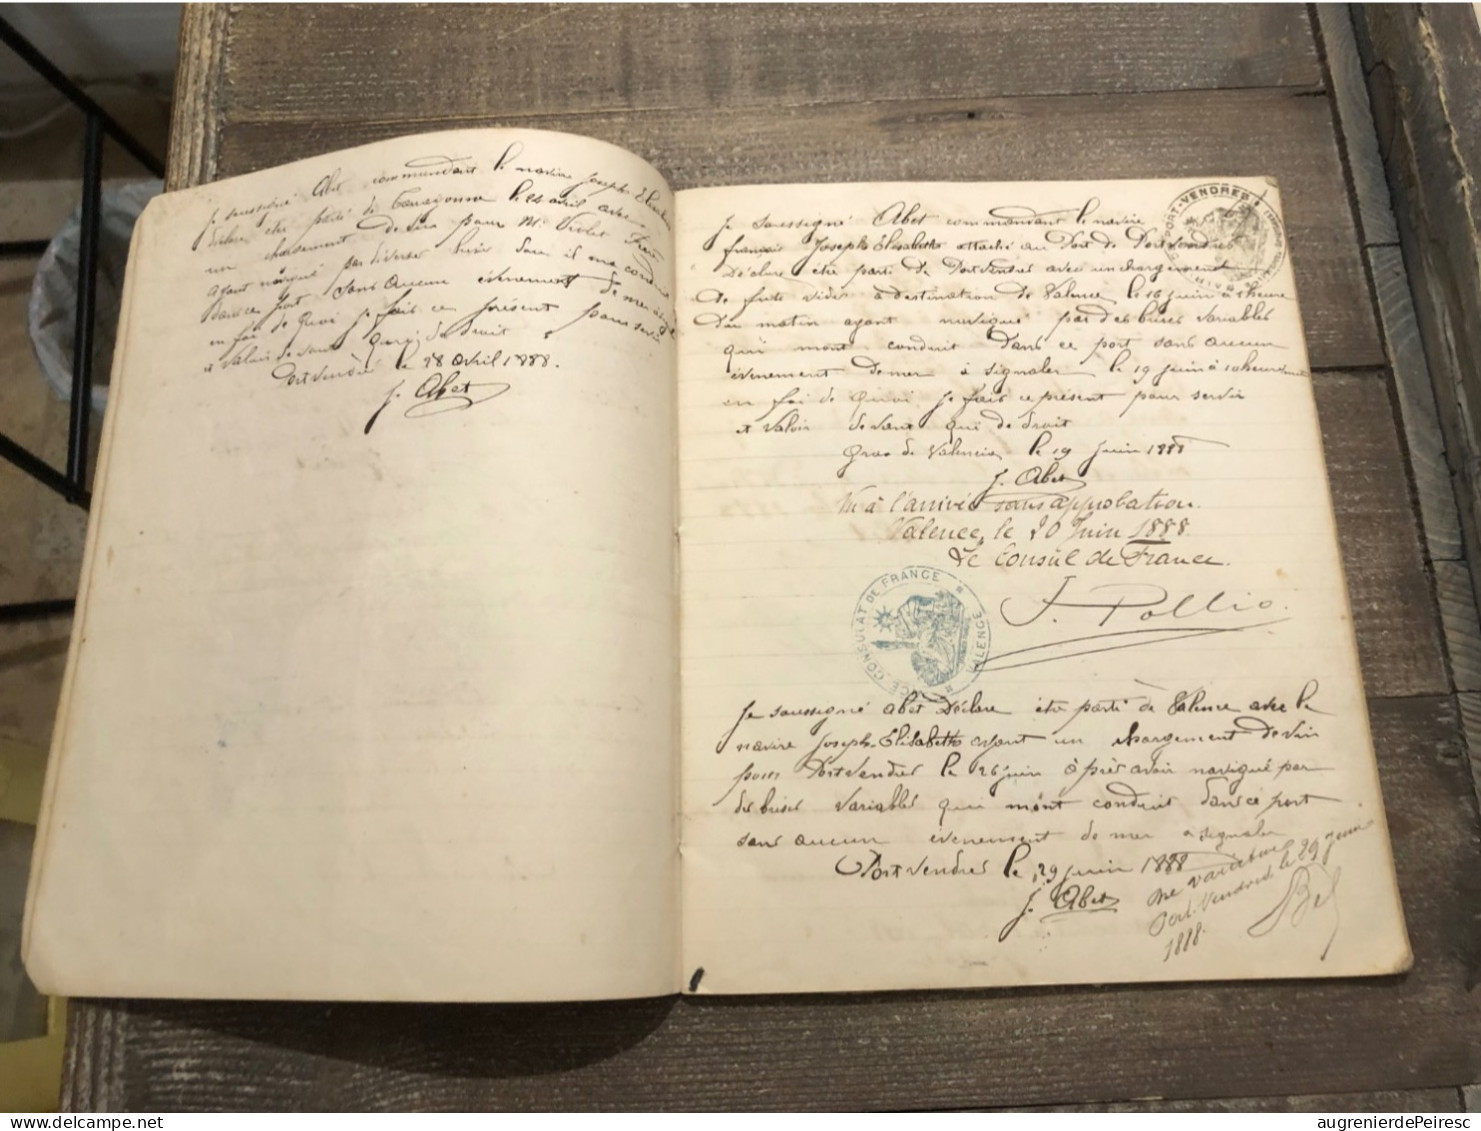 Je soussigné Abet commandant le navire Joseph Elisabeth
déclare être parti de Tarragonne le 24 avril avec
un chargement de vin pour Mr Violet Frère
ayant navigué par diverses il me conduit
dans ce port sans aucun évènement de mer
en foi de quoi je fais ce présent pour servir
et valoir devant qui de droit
Portvendre le 28 avril 1888.
J. Abet
PORT-VENDRES
Je soussigné Abet commandant le navire
français Joseph Elisabeth attaché au Port de Portvendres
Déclare être parti de Portvendres avec un chargement
de futs vides à destination de Valence le 16 juin à 1 heure
du matin ayant navigué par des brises variables
qui m'ont conduit dans ce port sans aucun
évènement de mer à signaler le 19 juin à 10 heures
en foi de quoi je fais ce présent pour servir
et valoir devant qui de droit
Grao de Valencia le 19 juin 1888
J. Abet
Vu à l'arrivée sans approbation
Valence, le 20 Juin 1888.
Le Consul de France.
J. Pollio.
CONSULAT DE FRANCE
VALENCE
Je soussigné Abet Déclare être parti de Valence avec le
navire Joseph-Elisabeth ayant un chargement de vin
pour Portvendres le 26 juin après avoir navigué par
des brises variables qui m'ont conduit dans ce port
sans aucun évènement de mer à signaler
Portvendres le 29 juin 1888
J. Abet
Ne varietur
Port-Vendres le 29 juin
1888.
augrenierdePeiresc
www.delcampe.net